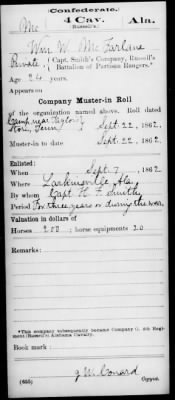 Confederate.
Mc 4 Cav. Ala.
Russell's.
Wm W. McFarlane
Private, Capt. Smith's Company, Russell's
Battalion of Partisan Rangers.*
Age 24 years.
Appears on
Company Muster-in Roll
of the organization named above. Roll dated
Camp near Taylors
Store, Tenn. Sept. 22, 1862.
Muster-in to date Sept. 22, 1862.
Enlisted:
When Sept. 7, 1862.
Where Larkinsville, Ala.
By whom Capt. H. F. Smith
Period For three years or during the war
Valuation in dollars of
Horses 200 ; horse equipments 20
Remarks:
*This company subsequently became Company G, 4th Regiment (Russell's) Alabama Cavalry.
Book mark:
J W Conard
(655) Copyist.